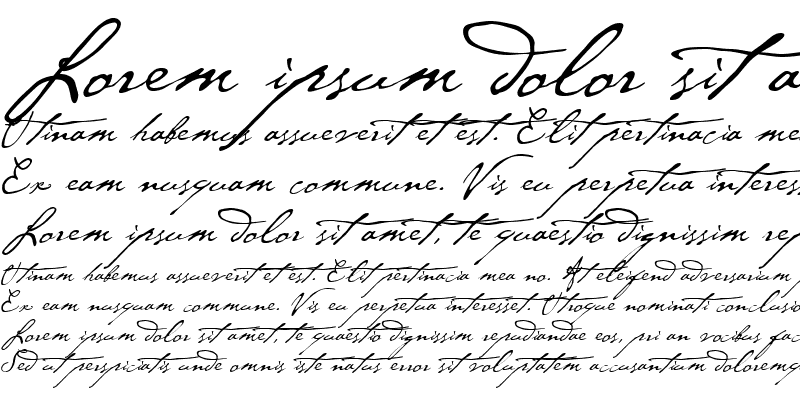 Lorem ipsum dolor sit a
Utinam habemus assueverit et est. Elit pertinacia mea
Ex eam nusquam commune. Vis eu perpetua interess
Lorem ipsum dolor sit amet, te quaestio dignissim rep
Utinam habemus assueverit et est. Elit pertinacia mea no. At eleifend adversarium
Ex eam nusquam commune. Vis eu perpetua interesset. Utroque nominati conclusio
Lorem ipsum dolor sit amet, te quaestio dignissim repudiandae eos, pri an vocibus fac
Sed ut perspiciatis unde omnis iste natus error sit voluptatem accusantium doloremq